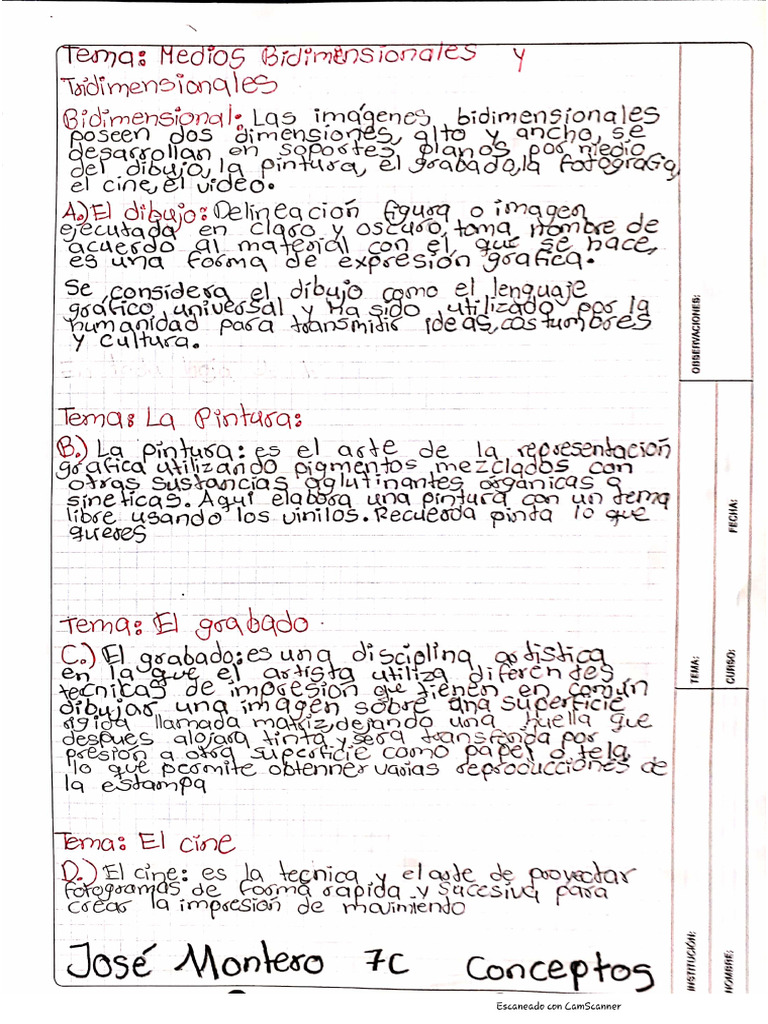 Tema: Medios Bidimensionales y
Tridimensionales
Bidimensional: Las imágenes bidimensionales
poseen dos dimensiones, alto y ancho, se
desarrollan en soportes planos por medio
del dibujo, la pintura, el grabado, la fotografia,
el cine, el video.
A.) El dibujo: Delineación figura o imagen
ejecutada en claro y oscuro, toma nombre de
acuerdo al material con el que se hace,
es una forma de expresión grafica.
Se considera el dibujo como el lenguaje
gráfico universal y ha sido utilizado por la
humanidad para transmitir ideas, costumbres
y cultura.
Tema: La Pintura:
B.) La pintura: es el arte de la representación
grafica utilizando pigmentos mezclados con
otras sustancias aglutinantes orgánicas o
sineticas. Aqui elabora una pintura con un tema
libre usando los vinilos. Recuerda pinta lo que
queres
Tema: El grabado
C.) El grabado: es una disciplina artistica
en la que el artista utiliza diferentes
tecnicas de impresión que tienen en común
dibujar una imagen sobre una superficie
rigida llamada matriz, dejando una huella que
despues alojara tinta y será transferida por
presión a otra superficie como papel o tela,
lo que permite obtenner varias reproducciones de
la estampa
Tema: El cine
D.) El cine: es la tecnica y el arte de proyectar
fotogramas de forma rapida y sucesiva para
crear la impresión de movimiento
José Montero 7C Conceptos
OBSERVACIONES:
FECHA:
TEMA:
CURSO:
INSTITUCIÓN:
NOMBRE:
Escaneado con CamScanner